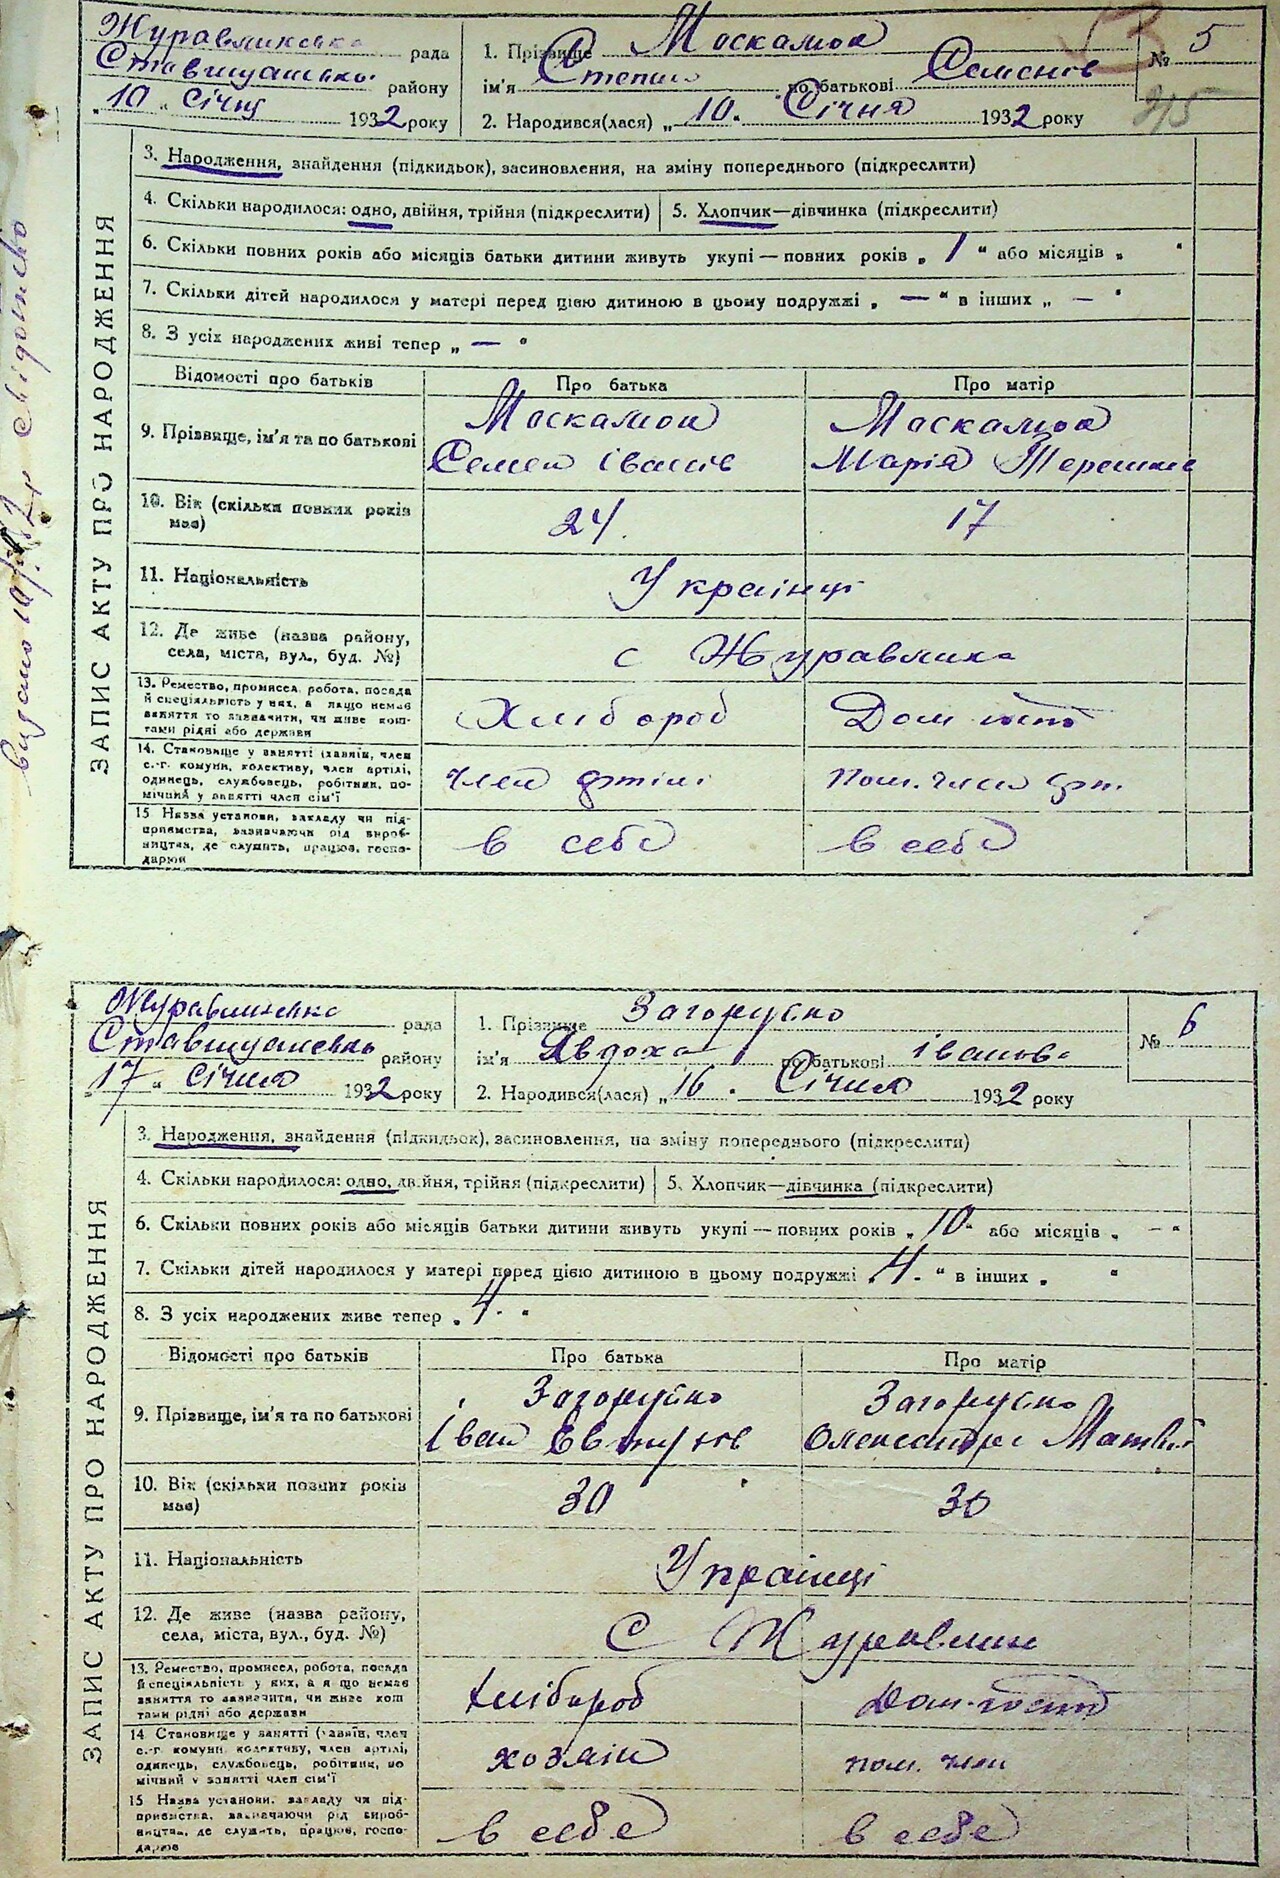 Журавлинська рада
Ставищансько району
„10„ Січня 1932 року
1. Прізвище Москалюк
ім'я Степан по батькові Семенів
2. Народився(лася) „10„ Січня 1932 року
№ 5
53
ЗАПИС АКТУ ПРО НАРОДЖЕННЯ
3. Народження, знайдення (підкидьок), засиновлення, на зміну попереднього (підкреслити)
4. Скільки народилося: одно, двійня, трійня (підкреслити)
5. Хлопчик—дівчинка (підкреслити)
6. Скільки повних років або місяців батьки дитини живуть укупі — повних років „ 1 “ або місяців „ “
7. Скільки дітей народилося у матері перед цією дитиною в цьому подружжі „ — “ в інших „ — “
8. З усіх народжених живі тепер „ — “
Відомості про батьків
Про батька
Про матір
9. Прізвище, ім'я та по батькові
Москалюк
Семен Іванів
Москалюк
Марія
10. Вік (скільки повних років має)
24
17
11. Національність
Українці
12. Де живе (назва району,
села, міста, вул., буд. №)
с Журавлиха
13. Ремество, промисел, робота, посада
й спеціяльність у них, а якщо немає
заняття то зазначити, чи живе кош-
тами рідні або держави
Хлібороб
Дом. госпо
14. Становище у занятті (хазяїн, член
с.-г. комуни, колективу, член артілі,
одинець, службовець, робітник, по-
мічний у занятті член сім'ї
член артілі
пом. член арт.
15 Назва установи, закладу чи під-
приємства, зазначаючи рід вироб-
ництва, де служить, працює, госпо-
дарює
в себе
в себе
Журавлинська рада
Ставищансько району
„17„ Січня 1932 року
1. Прізвище Загоруйко
ім'я Явдоха по батькові Іванова
2. Народився(лася) „16„ Січня 1932 року
№ 6
ЗАПИС АКТУ ПРО НАРОДЖЕННЯ
3. Народження, знайдення (підкидьок), засиновлення, на зміну попереднього (підкреслити)
4. Скільки народилося: одно, двійня, трійня (підкреслити)
5. Хлопчик—дівчинка (підкреслити)
6. Скільки повних років або місяців батьки дитини живуть укупі — повних років „ 10 “ або місяців „ — “
7. Скільки дітей народилося у матері перед цією дитиною в цьому подружжі „ 4 “ в інших „ “
8. З усіх народжених живе тепер „ 4 “
Відомості про батьків
Про батька
Про матір
9. Прізвище, ім'я та по батькові
Загоруйко
Іван
Загоруйко
Олександра Матвій
10. Вік (скільки повних років має)
30
30
11. Національність
Українці
12. Де живе (назва району,
села, міста, вул., буд. №)
с Журавлих
13. Ремество, промисел, робота, посада
й спеціяльність у них, а якщо немає
заняття то зазначити, чи живе кош
тами рідні або держави
Хлібороб
Дом. госпо
14 Становище у занятті (хазяїн, член
с.-г комуни, колективу, член артілі,
одинець, службовець, робітник, по
мічний у занятті член сім'ї
хозяїн
пом. член
15 Назва установи, закладу чи під-
приємства, зазначаючи рід вироб-
ництва, де служить, працює, госпо-
дарює
в себе
в себе